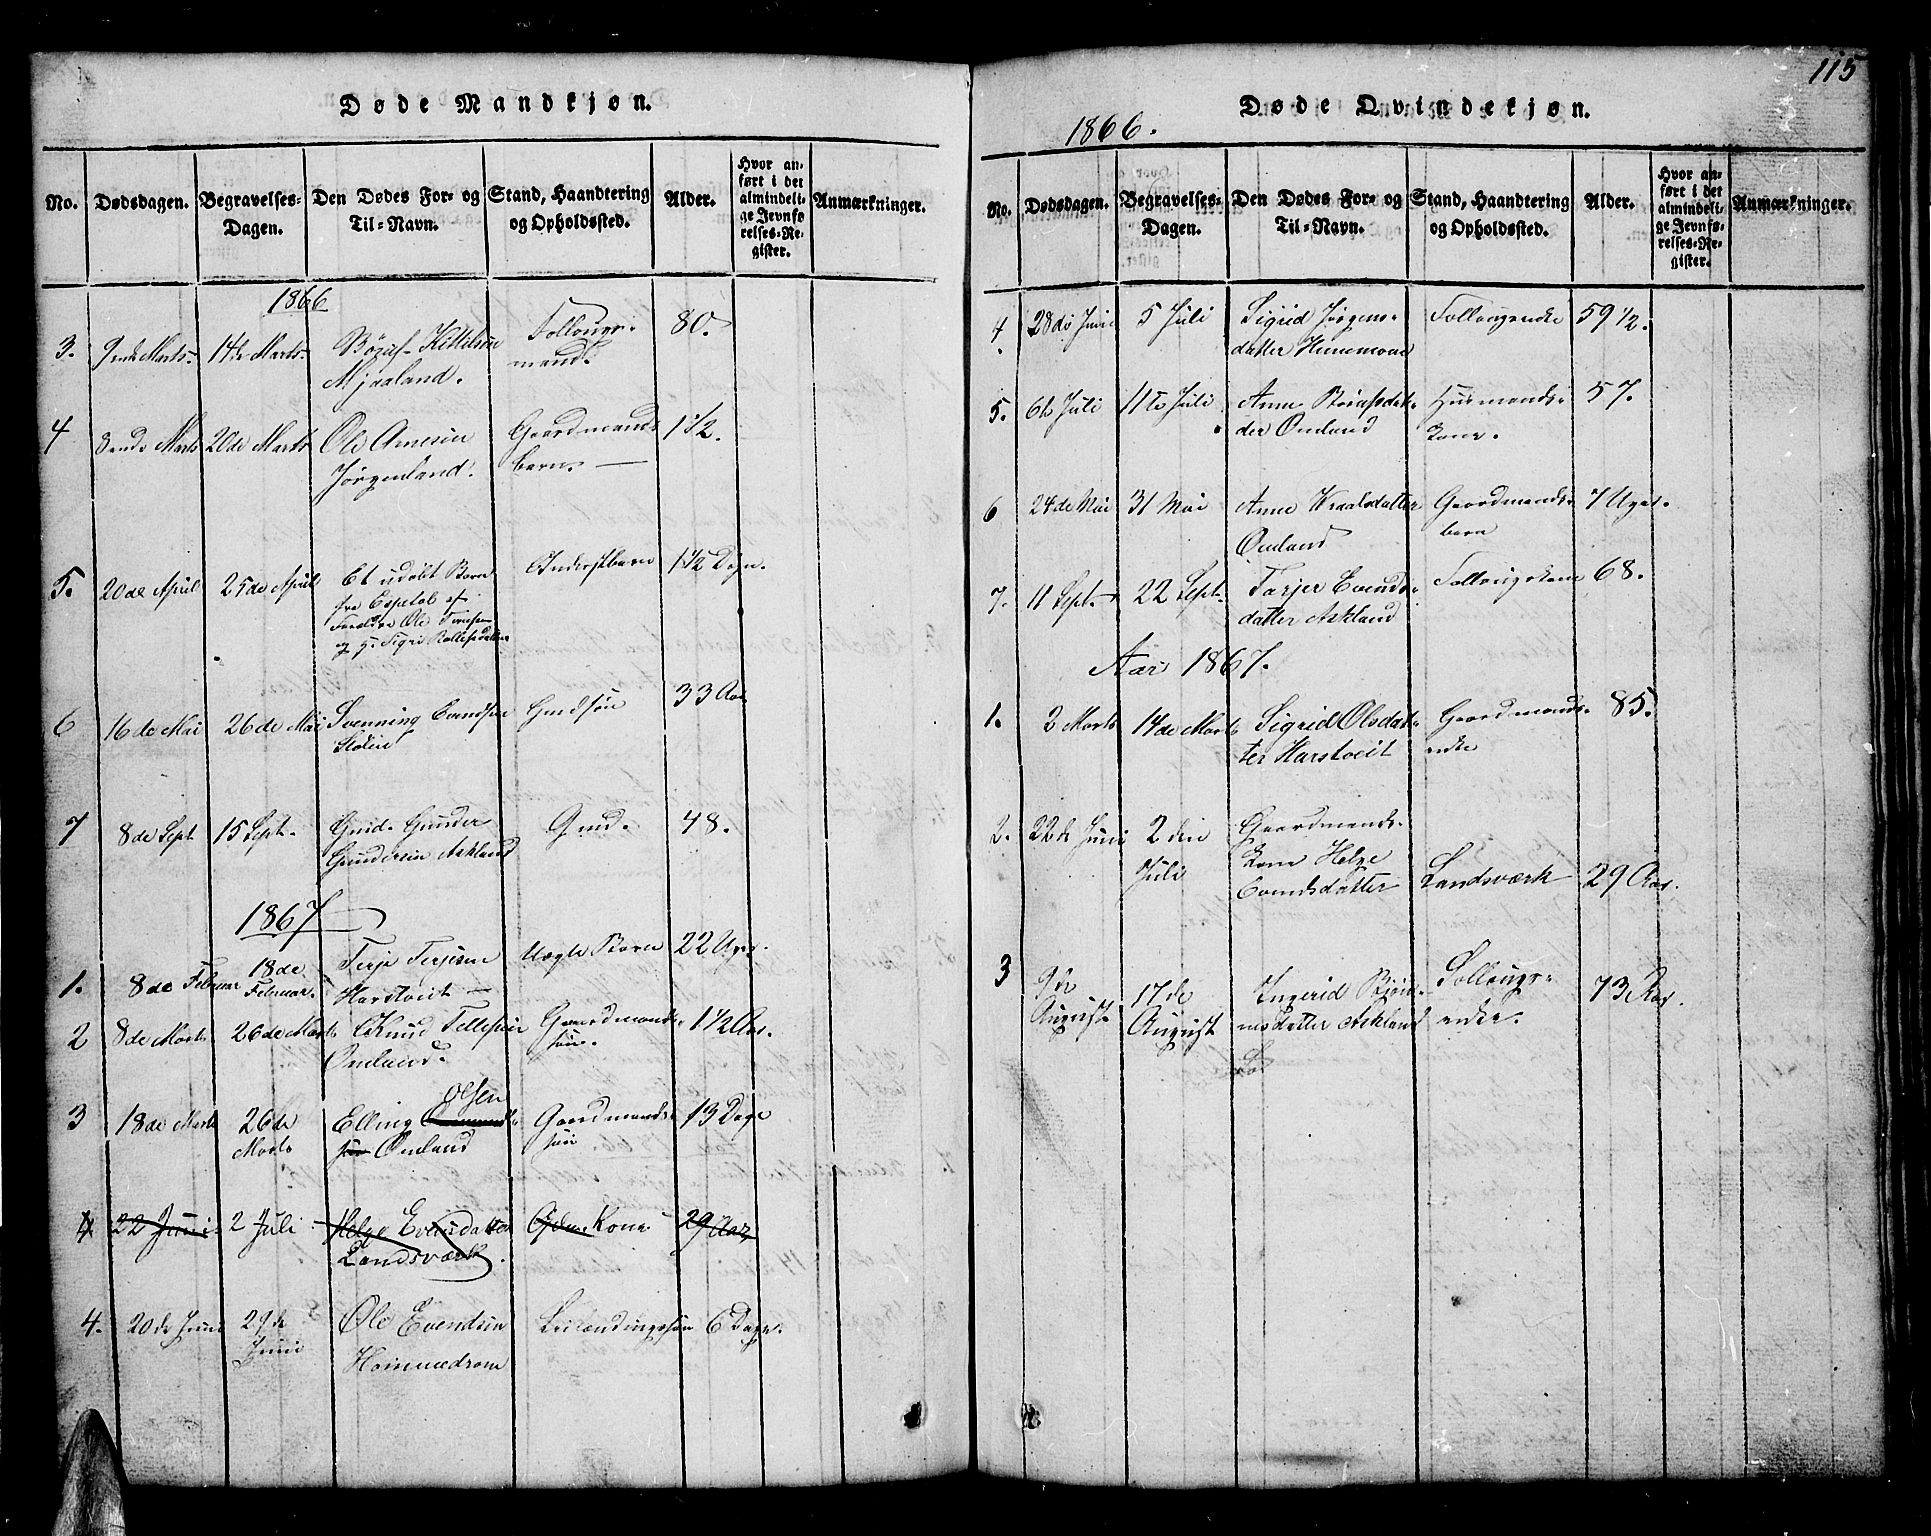 115
Døde Mandkjøn.
No.
Dødsdagen.
Begravelses-
Dagen.
Den Dødes For- og
Til-Navn.
Stand, Haandtering
og Opholdssted.
Alder.
Hvor an-
ført i det
almindeli-
ge Jevnfø
relses-Re-
gister.
Anmærkninger.
1866
3. 9ende Marts 14de Marts Kittilsen 80.
Mjaaland. mand.
4 8ende Marts 20de Marts Ole Arnesen Gaardmands 1 1/2.
Jørgenland. barn.
5. 20de April 25de April Et udøbt Barn Inderstbarn 1 1/2 Døgn.
fra Espetøl af
Forældre Ole
6 16de Mai 26de Mai Svenning Evendsen 33 Aar
7 8de Sept 15 Sept. Gunder 48.
Gundersen Askland
1867
1. 8de Februar 18de Terje Terjesen Uægte Barn 22 Uger.
Februar. Harstveit
2 8de Marts 26de Marts Knud Tellefsen Gaardmands- 1 1/2 Aar.
Omland. søn.
Olsen
3 18de Marts 26de Elling Gaardmands- 13 Dage
Marts Omland søn
4 22 Juni 2 Juli Helge Evensdatter Kone 29 Aar
Landsværk.
4. 20de Juni 29de Ole Evendsen Leilændingssøn 6 Dage.
Juni
Døde Qvindekjøn.
1866.
No.
Dødsdagen.
Begravelses-
Dagen.
Den Dødes For- og
Til-Navn.
Stand, Haandtering
og Opholdssted.
Alder.
Hvor an-
ført i det
almindeli-
ge Jevnfø-
relses-Re-
gister.
Anmærkninger.
4. 28de Juni 5 Juli Sigrid Jørgens- Follougsenke 59 1/2.
datter
5. 6te Juli 11te Juli Anne Huusmands- 57.
Omland kone.
6 24de Mai 31 Mai Anne Gaardmands- 7 Uger.
Omland barn
7. 11 Sept. 22 Sept. Tarjer Evends- Follougskone 68.
datter Askland
Aar 1867.
1. 3 Marts 14de Marts Sigrid Olsdat- Gaardmands- 85.
ter Harstveit enke
2. 22de Juni 2den Gaardmands-
Juli kone Helge
Evendsdatter Landsværk 29 Aar.
3 9de 17de Ingerid Bjøn- Follougs- 73 Aar.
August August nesdatter Askland enke.